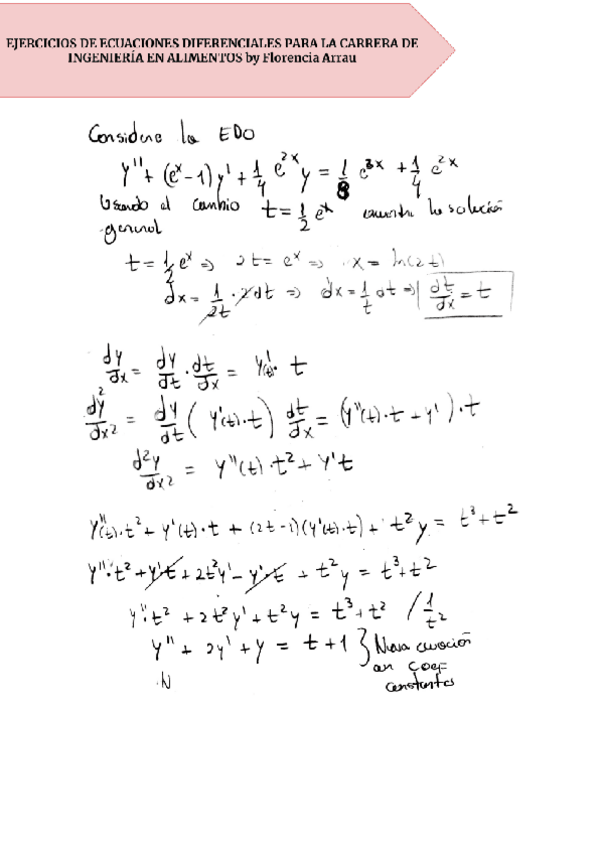 EJERCICIOS DE ECUACIONES DIFERENCIALES PARA LA CARRERA DE
INGENIERÍA EN ALIMENTOS by Florencia Arrau
Considere la EDO
y'' + (e^x - 1) y' + 1/4 e^{2x} y = 1/8 e^{3x} + 1/4 e^{2x}
Usando el cambio t = 1/2 e^x encuentre la solución
general
t = 1/2 e^x => 2t = e^x => x = ln(2t)
dx = 1/2t · 2dt => dx = 1/t dt => dt/dx = t
dy/dx = dy/dt · dt/dx = y'(t) · t
dy^2/dx^2 = dy/dt ( y'(t)·t ) dt/dx = (y''(t)·t + y')·t
d^2y/dx^2 = y''(t)·t^2 + y't
y''(t)·t^2 + y'(t)·t + (2t-1)(y'(t)·t) + t^2y = t^3 + t^2
y''·t^2 + y't + 2t^2y' - y'·t + t^2y = t^3 + t^2
y''·t^2 + 2t^2y' + t^2y = t^3 + t^2 / 1/t^2
y'' + 2y' + y = t + 1 } Nueva ecuación
an coef
constantes
·N